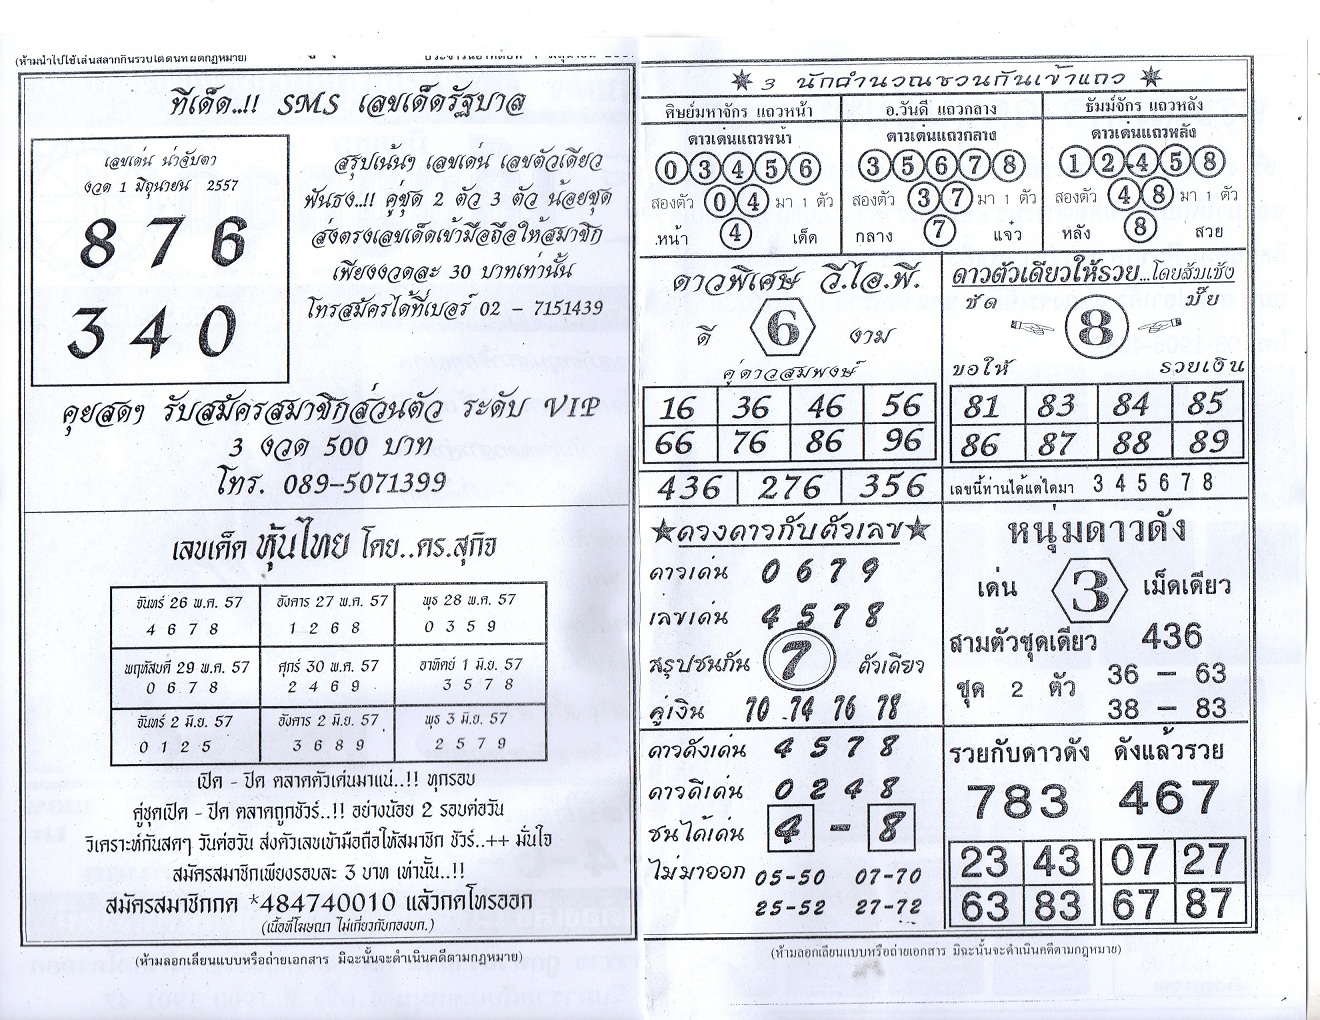 (ห้ามนำไปใช้เล่นสลากกินรวบโดยผิดกฎหมาย)
ทีเด็ด..!! SMS เลขเด็ดรัฐบาล
เลขเด่น น่าลับดา
งวด 1 มิถุนายน 2557
8 7 6
3 4 0
สรุปเน้นๆ เลขเด่น เลขตัวเดียว
ฟันธง..!! คู่ชุด 2 ตัว 3 ตัว น้อยชุด
ส่งตรงเลขเด็ดเข้ามือถือให้สมาชิก
เพียงงวดละ 30 บาทเท่านั้น
โทรสมัครได้ที่เบอร์ 02 - 7151439
คุยสดๆ รับสมัครสมาชิกส่วนตัว ระดับ VIP
3 งวด 500 บาท
โทร. 089-5071399
เลขเด็ด หุ้นไทย โดย..ดร.สุกิจ
จันทร์ 26 พ.ค. 57 อังคาร 27 พ.ค. 57 พุธ 28 พ.ค. 57
4 6 7 8 1 2 6 8 0 3 5 9
พฤหัสบดี 29 พ.ค. 57 ศุกร์ 30 พ.ค. 57 อาทิตย์ 1 มิ.ย. 57
0 6 7 8 2 4 6 9 3 5 7 8
จันทร์ 2 มิ.ย. 57 อังคาร 2 มิ.ย. 57 พุธ 3 มิ.ย. 57
0 1 2 5 3 6 8 9 2 5 7 9
เปิด - ปิด ตลาดตัวเด่นมาแน่..!! ทุกรอบ
คู่ชุดเปิด - ปิด ตลาดถูกชัวร์..!! อย่างน้อย 2 รอบต่อวัน
วิเคราะห์กันสดๆ วันต่อวัน ส่งตัวเลขเข้ามือถือให้สมาชิก ชัวร์..++ มั่นใจ
สมัครสมาชิกเพียงรอบละ 3 บาท เท่านั้น..!!
สมัครสมาชิกกด *484740010 แล้วกดโทรออก
(เนื้อที่โฆษณา ไม่เกี่ยวกับกองบก.)
(ห้ามลอกเลียนแบบหรือถ่ายเอกสาร มิฉะนั้นจะดำเนินคดีตามกฎหมาย)
3 นักคำนวณชวนกันเข้าแถว
ศิษย์มหาจักร แถวหน้า อ.วันดี แถวกลาง ธัมม์จักร แถวหลัง
ดาวเด่นแถวหน้า ดาวเด่นแถวกลาง ดาวเด่นแถวหลัง
0 3 4 5 6 3 5 6 7 8 1 2 4 5 8
สองตัว 0 4 มา 1 ตัว สองตัว 3 7 มา 1 ตัว สองตัว 4 8 มา 1 ตัว
.หน้า 4 เด็ด กลาง 7 แจว หลัง 8 สวย
ดาวพิเศษ วี.ไอ.พี.
ดี 6 งาม
คู่ดาวสมพงษ์
16 36 46 56
66 76 86 96
436 276 356
ดาวตัวเดียวให้รวย...โดยสัมเช้ง
ชัด มั๊ย
8
ขอให้ รวยเงิน
81 83 84 85
86 87 88 89
เลขนี้ท่านได้แต่ใดมา 3 4 5 6 7 8
ดวงดาวกับตัวเลข
ดาวเด่น 0 6 7 9
เล่ขเด่น 4 5 7 8
สรุปชนกัน 7 ตัวเดียว
คู่เงิน 70 .74 76 78
ดาวดังเด่น 4 5 7 8
ดาวดีเด่น 0 2 4 8
ชนได้เด่น 4 - 8
ไม่มาออก 05-50 07-70
25-52 27-72
หนุ่มดาวดัง
เด่น 3 เม็ดเดียว
สามตัวชุดเดียว 436
ชุด 2 ตัว 36 - 63
38 - 83
รวยกับดาวดัง ดังแล้วรวย
783 467
23 43 07 27
63 83 67 87
(ห้ามลอกเลียนแบบหรือถ่ายเอกสาร มิฉะนั้นจะดำเนินคดีตามกฎหมาย)